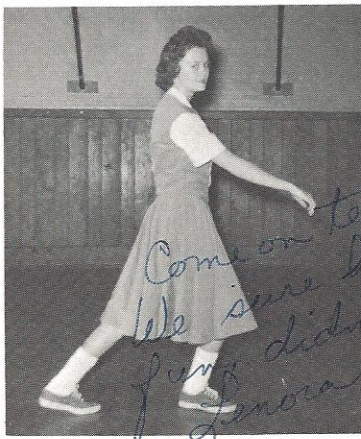 Come on te
We sure h
fun, didn
Lenora